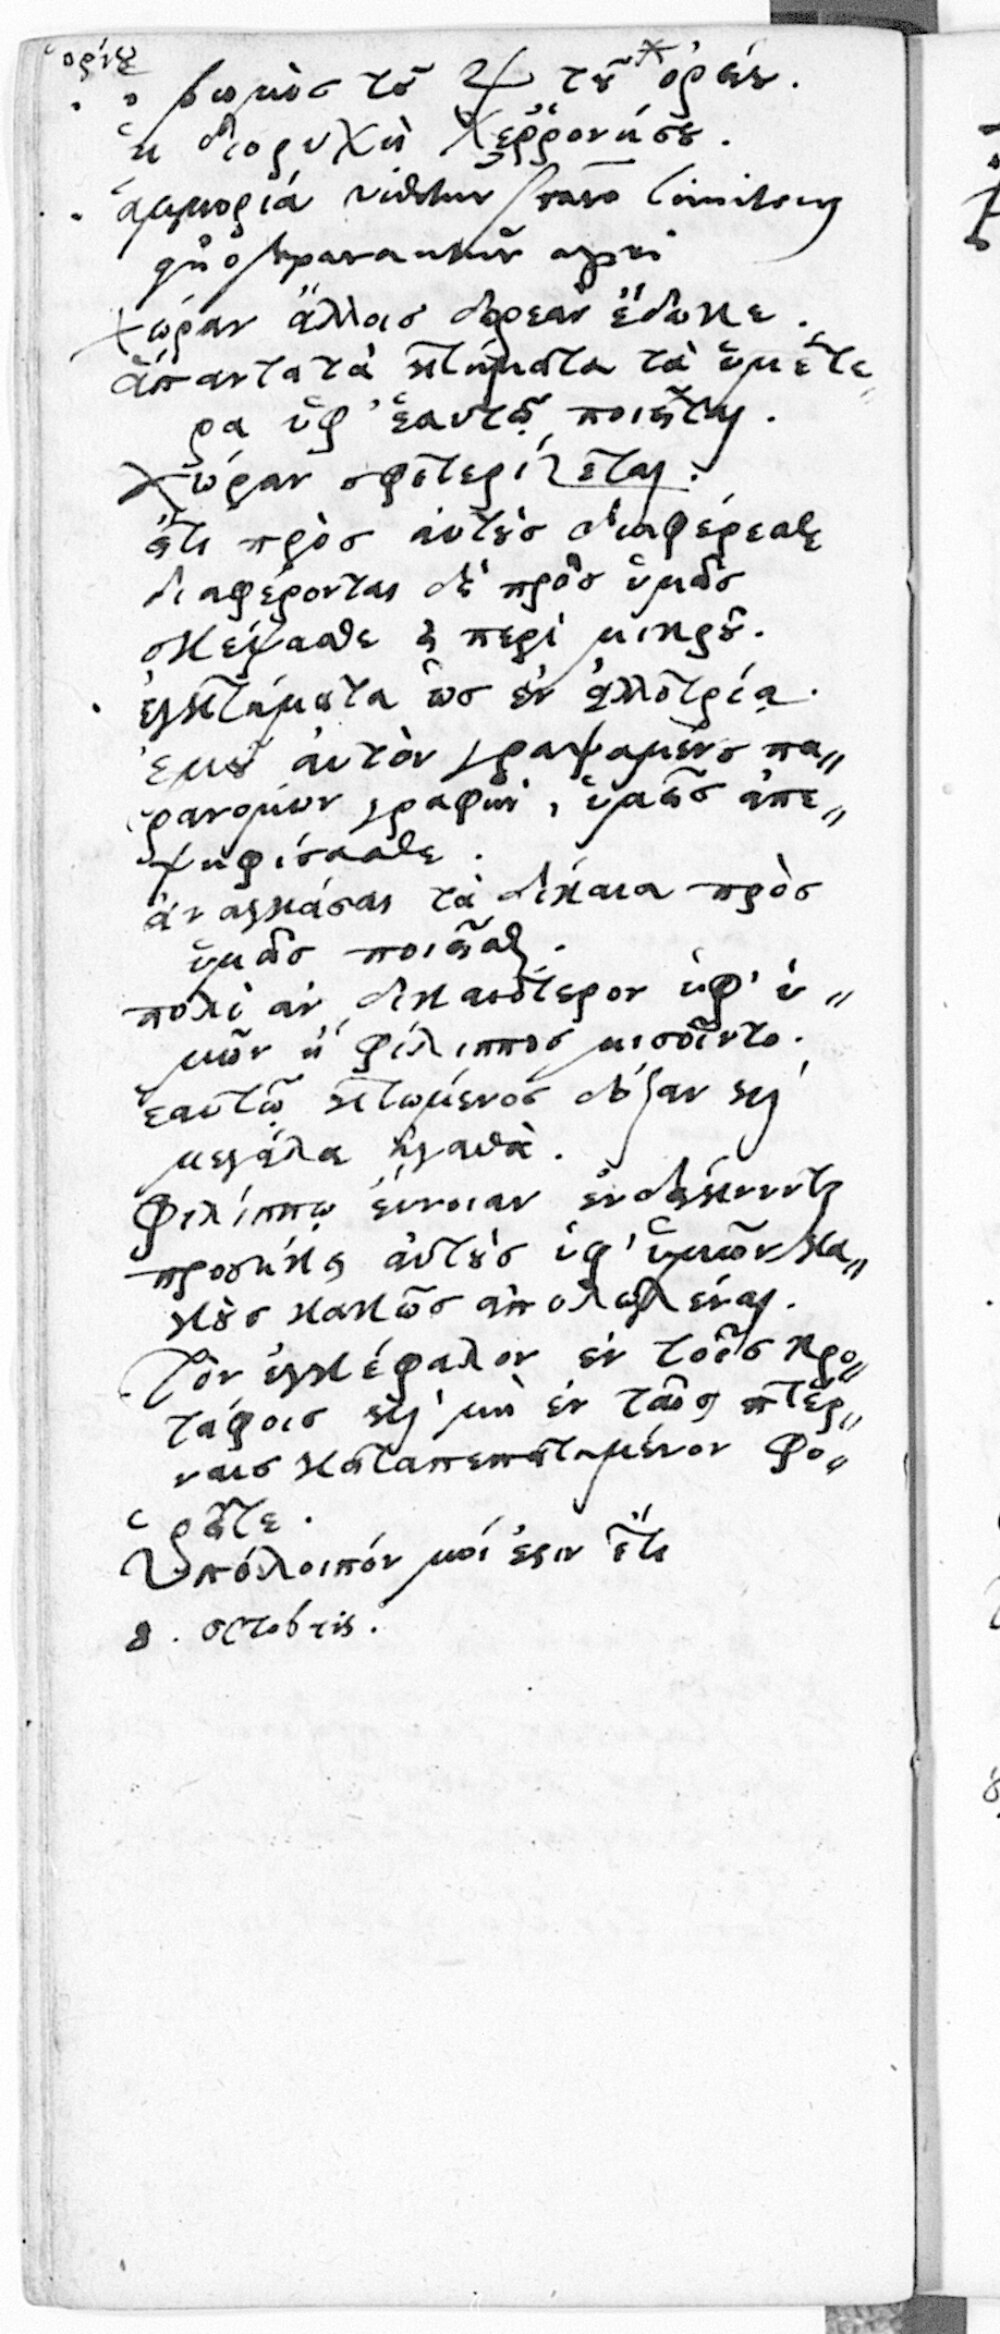 ὁρίου
βωμὸσ τοῦ ♃ τοῦ * ὁρείου.
ἡ διορυχὴ Χερρονήσου.
ἀμμορία limitem
χώραν ἄλλοισ δωρεὰν ἔδωκε.
ἅπαντα τὰ κτήματα τὰ ὑμέτε
ρα ὑφ' ἑαυτῷ ποιεῖται.
Χώραν σφετερίζεται.
ὅτι πρὸσ αὐτοὺσ διαφέρεσθε
διαφέρονται δὲ πρὸσ ὑμᾶσ
σκέψασθε περὶ μικροῦ.
ἐγκτήματα ὡσ ἐν ἀλλοτρίᾳ.
ἐμοῦ αὐτὸν γραψαμένου πα„
ρανόμων γραφὴν, ὑμεῖσ ἀπε„
ψηφίσασθε.
ἀναγκάσαι τὰ δίκαια πρὸσ
ὑμᾶσ ποιεῖσθαι.
πολὺ ἂν δικαιότερον ὑφ' ὑ„
μῶν ἢ φίλιπποσ μισοῖντο.
ἑαυτῷ κτώμενοσ δόξαν καὶ
μεγάλα ἀγαθὰ.
Φιλίππῳ εὔνοιαν ἐνδείκνυνται
προσήκει αὐτοὺσ ὑφ' ὑμῶν κα„
κοὺσ κακῶσ ἀπολωλέναι.
Τὸν ἐγκέφαλον ἐν τοῖσ κρο„
τάφοισ καὶ μὴ ἐν ταῖσ πτέρ„
ναισ καταπεπατημένον φο„
ρεῖτε.
Ὑπόλοιπόν μοί ἐστιν ἔτι
8. octobris.